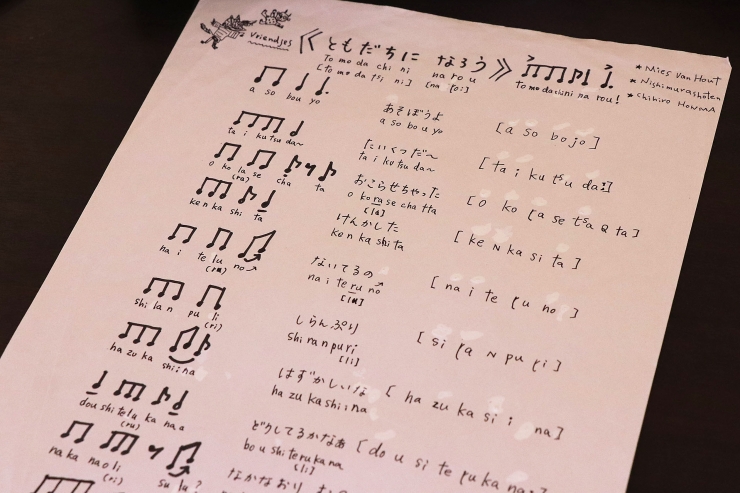 Vriendjes 《ともだちに なろう》
to mo da chi ni na ro u
[to mo da tʃi ni na ɽo:]
to mo dachini na rou!
★Mies van Hout
★Nishimurashoten
★Chihiro Howona
a so bou yo あそぼうよ [a so bo jo]
a so bo u yo
ta i kutsu da〜 たいくつだ〜 [ta i ku tsu da:]
ta i kutsu da〜
o ko la se cha ta おこらせちゃった [o ko ɽa se tsa Q ta]
(ra) o ko ra se cha tta
[la]
ken ka shi ta けんかした [ke N ka si ta]
ken ka shi ta
na i te lu no ないてるの [na i te ɽu no]
(ru) na i te ru no
[lu]
shi lan pu li しらんぷり [si ɽa N pu ɽi]
(ri) shi ran pu ri
[li]
ha zu ka shi i na はずかしいな [ha zu ka si i na]
ha zu ka shi i na
dou shi te lu ka na a どうしてるかなあ [do u si te ɽu ka na:]
(ru) bo u shi te ru ka na
[li]
na ka na o li su lu? なかなおり
(ri)